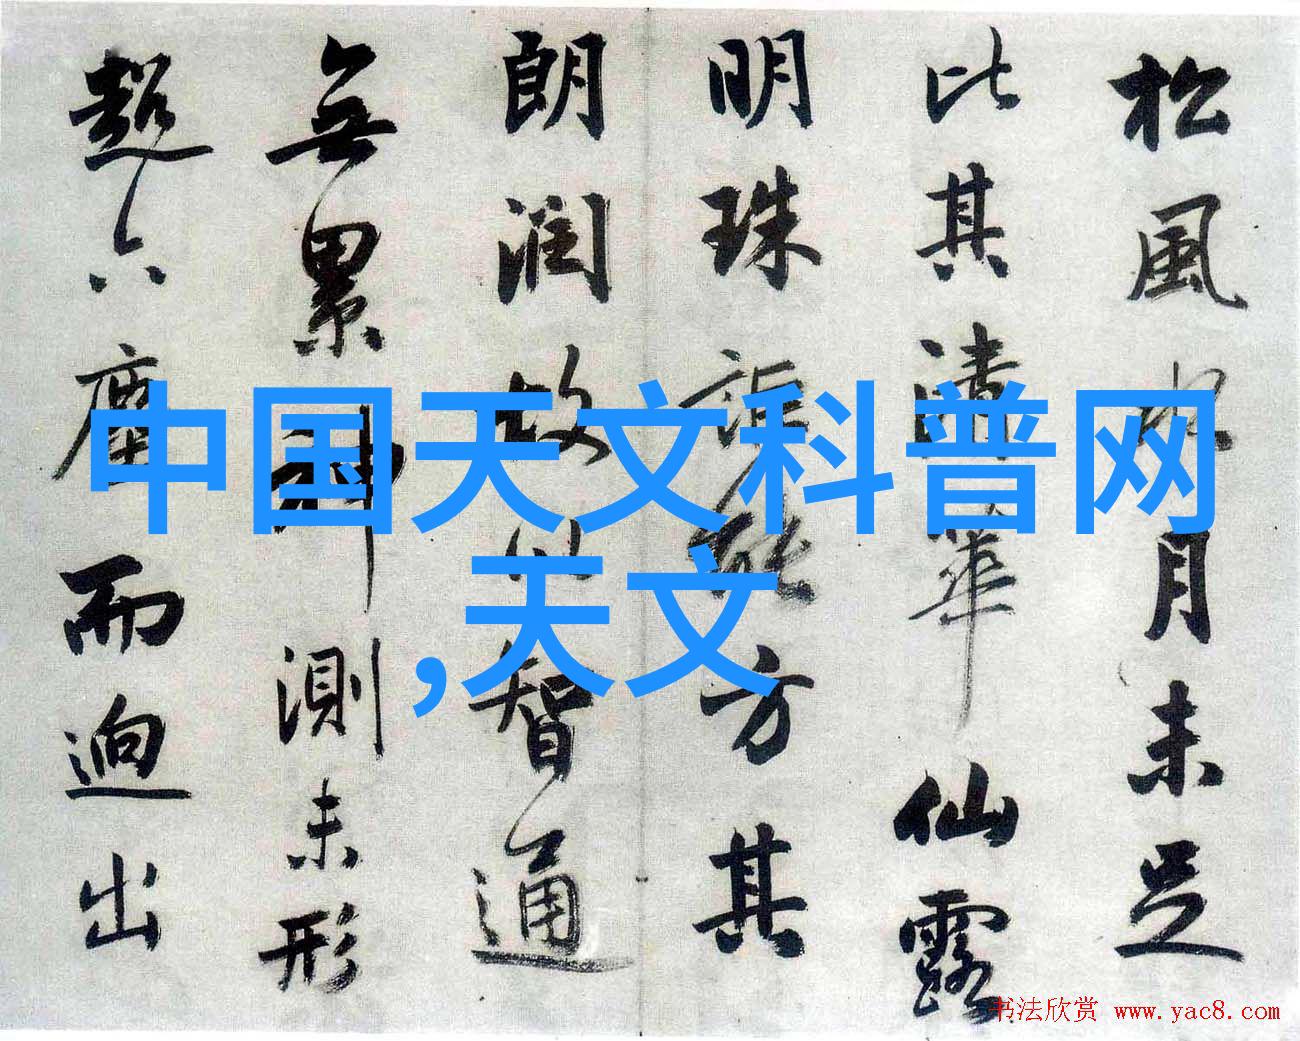 松風水月未足
比其清華仙露
明珠詎能方其
朗潤故以智通
無累神測未形
超六塵而迥出
中国天文科普网
,天文
书法欣赏 www.yac8.com